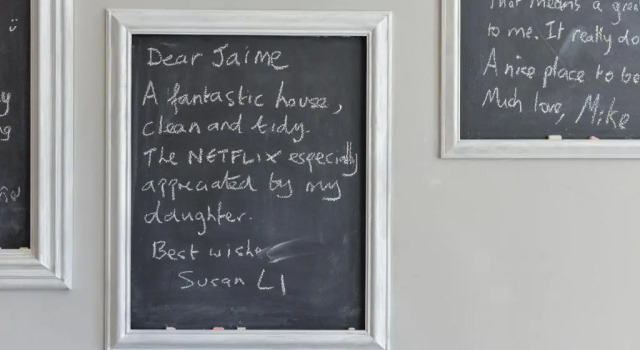 Dear Jaime
A fantastic house,
clean and tidy.
The NETFLIX especially
appreciated by my
daughter.
Best wishe
Susan LI
That means a great
to me. It really do
A nice place to be
Much love, Mike